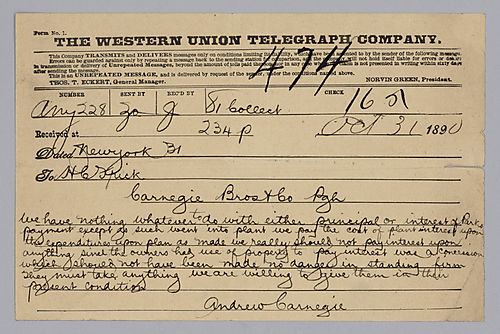 Form No. 1.
THE WESTERN UNION TELEGRAPH COMPANY.
This Company TRANSMITS and DELIVERS messages only on conditions limiting its liability, which have been assented to by the sender of the following message.
Errors can be guarded against only by repeating a message back to the sending station for comparison, and the company will not hold itself liable for errors or delays
in transmission or delivery of Unrepeated Messages, beyond the amount of tolls paid thereon, nor in any case where the claim is not presented in writing within sixty days
after sending the message.
This is an UNREPEATED MESSAGE, and is delivered by request of the sender, under the conditions named above.
THOS. T. ECKERT, General Manager. NORVIN GREEN, President.
474
NUMBER SENT BY REC'D BY CHECK
228 Collect
Received at 234 p Oct 31 1890
Dated New York 31
To H C Frick
Carnegie Bros & Co Pgh
We have nothing whatever to do with either principal or interest of Parks
payment except as such went into plant we pay the cost of plant interest upon
the expenditures upon plan as made we really should not pay interest upon
anything since the owners has use of property to pay interest was a concession
which should not have been made no danger in standing firm
They must take anything we are willing to give them in their
present condition
Andrew Carnegie